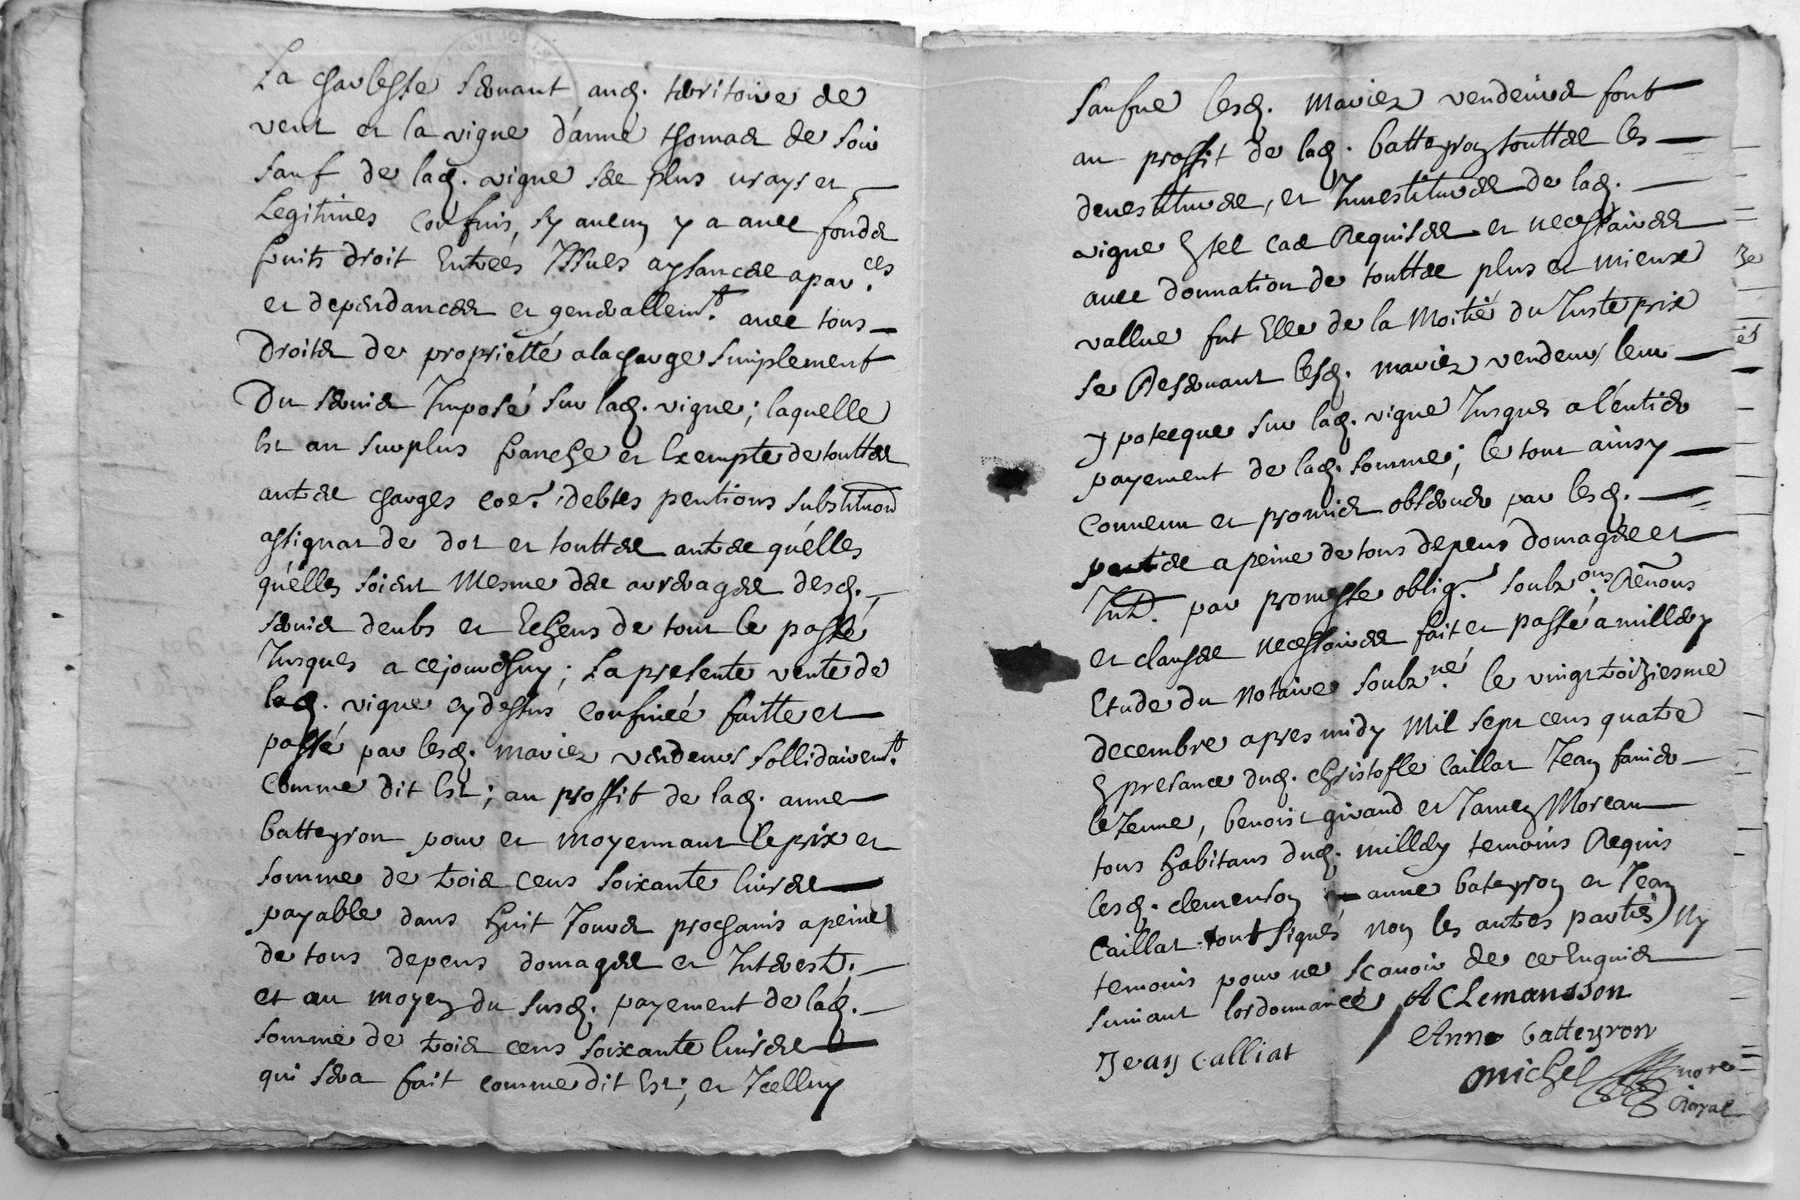 La charleste servant aud. territoire de
vent et la vigne d'anne thomas de soir
sauf de lad. vigne ses plus vrays et
Legitimes confins, sy aucun y a avec fonds
fruits droit Entrées Issues aysances apar.ces
et dependances et generallem.t avec tous
droits de proprietté a la charge simplement
Du servis Imposé sur lad. vigne; laquelle
Est au surplus franche et Exempte de touttes
autres charges debtes pentions substitu͠on
assignat de dot et touttes autres qu'elles
qu'elles soient Mesme des arrerages desd.
servis deubs et Echeus de tout le passé
Jusques a cejourdhuy; La presente vente de
lad. vigne cy dessus confinée faitte et
passé par lesd. mariez vendeurs sollidairem.t
comme dit Est; au proffit de lad. anne
batteyron pour et moyennant le prix et
somme de trois cens soixante livres
payable dans huit Jours prochains a peine
de tous depens domages et Interest.
et au moyen du susd. payement de lad.
somme de trois cens soixante livres
qui sera fait comme dit Est; et Icelluy
lesd. mariez vendeurs font
au proffit de lad. batteyron touttes les
devestitures, et Investitures de lad.
vigne En tel cas Requises et necessaires
avec donnation de touttes plus et mieux
vallue fut Elle de la Moitié du Juste prix
se Reservant lesd. mariez vendeurs leur
ypotecque sur lad. vigne Jusques a l'entier
payement de lad. somme; le tout ainsy
Convenu et promis observer par lesd.
parties a peine de tous depens domages et
Int. par promesse oblig. soubz.ons Renons
et clauses necessaires fait et passé a millery
Etude du Notaire soubz.né le vingt troiziesme
decembre apres midy Mil sept cens quatre
En presance dud. Christofle Caillat Jean
le Jeune, benoist giraud et James Moreau
tous habitans dud. millery temoins Requis
lesd. clemenson anne bateyron et Jean
Caillat ont signés non les autres parties Ny
temoins pour ne scavoir de ce Enquis
suivant lordonnance A Clemansson
Anne batteyron
Jean Calliat
Michel nore
Royal